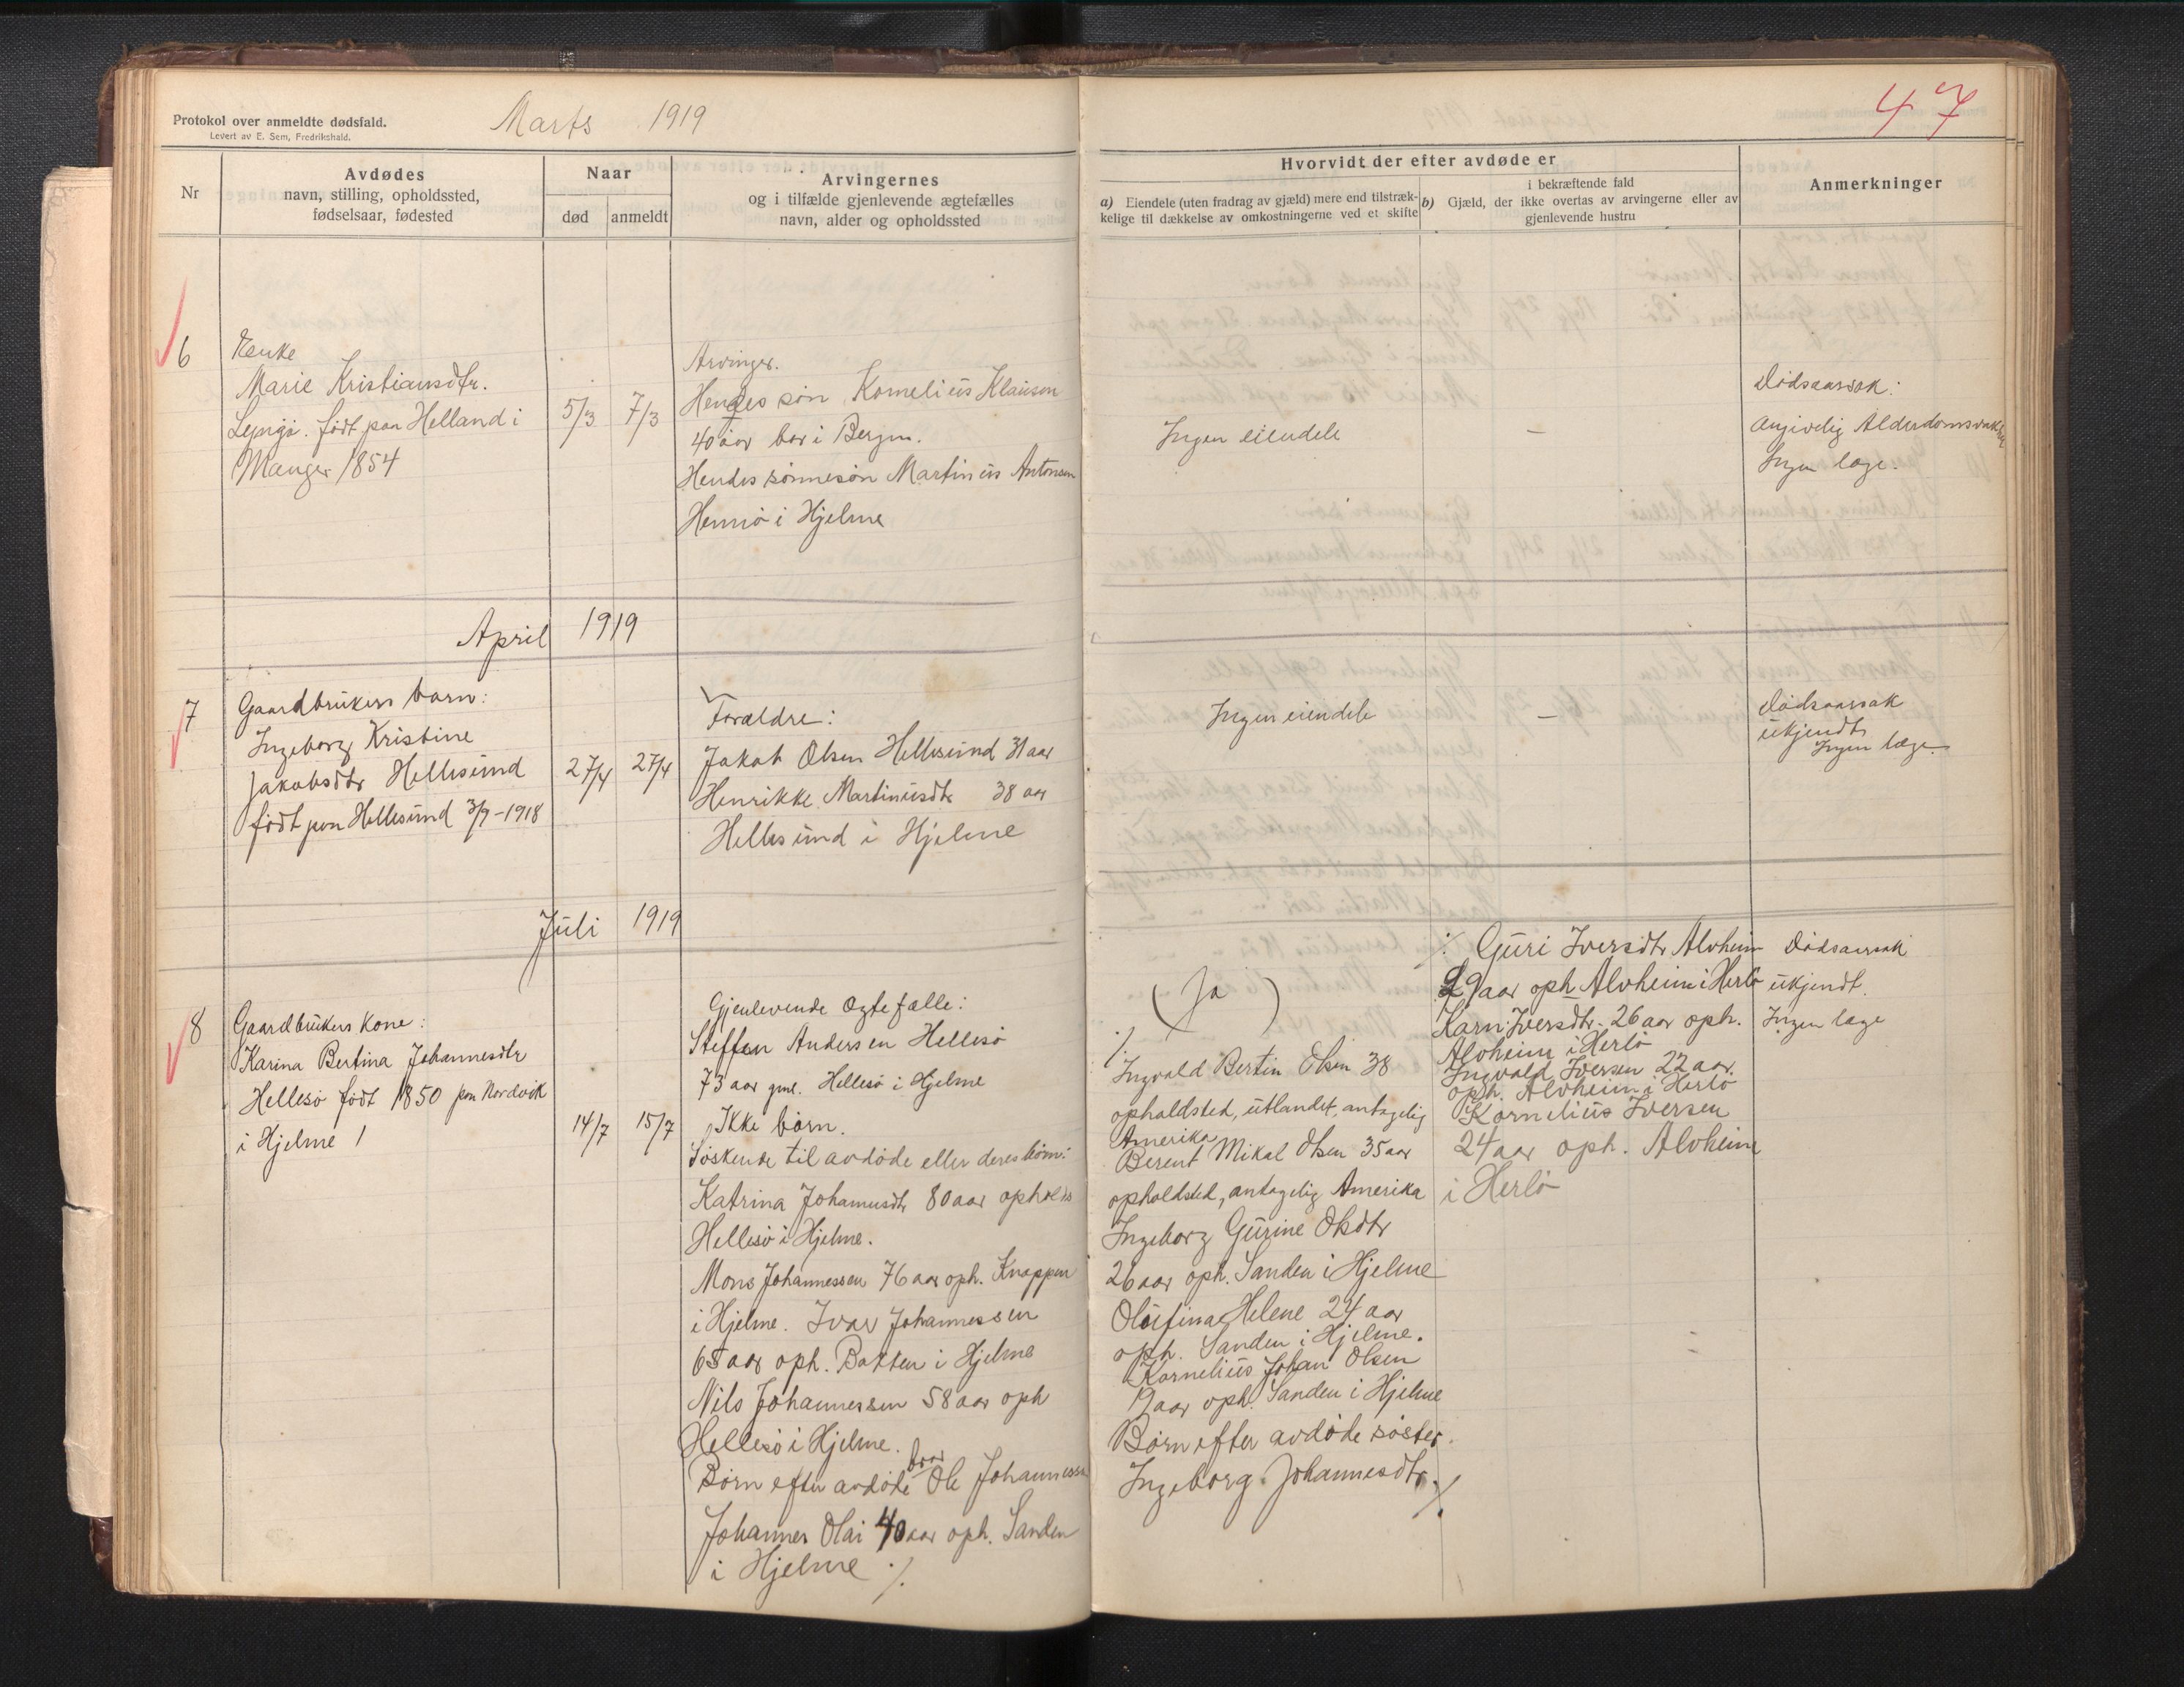 Protokol over anmeldte dødsfald.
Levert av E. Sem, Fredrikshald.
Marts 1919
47
Nr
Avdødes
navn, stilling, opholdssted,
fødselsaar, fødested
Naar
død
anmeldt
Arvingernes
og i tilfælde gjenlevende ægtefælles
navn, alder og opholdssted
Hvorvidt der efter avdøde er
a) Eiendele (uten fradrag av gjæld) mere end tilstræk-
kelige til dækkelse av omkostningerne ved et skifte
b) Gjæld, der ikke overtas av arvingerne eller av
i bekræftende fald
gjenlevende hustru
Anmerkninger
6
Enke
Marie Kristiansdtr.
født paa Helland i
Manger 1854
5/3
7/3
Arvinger.
Hendes søn Kornelius Klausen
40 aar bor i Bergen.
Hendes sønnesøn Martinius Antonsen
Hernø i Hjelme
Ingen eiendele
—
Dødsaarsak:
angivelig
Ingen læge.
April 1919
7
Gaardbrukers barn:
Ingeborg Kristine
Jakobsdtr Hellesund
født paa Hellesund 3/9-1918
27/4
27/4
Forældre:
Jakob Olsen Hellesund 31 aar
Henrikke Martinusdtr 38 aar
Hellesund i Hjelme
Ingen eiendele
—
Dødsaarsak
ukjendt
Ingen læge.
Juli 1919
8
Gaardbrukers kone:
Karina Bertina Johannesdtr
Hellesø født 1850 paa Nordvik
i Hjelme
14/7
15/7
Gjenlevende Ægtefælle:
Steffen Andersen Hellesø
73 aar gml. Hellesø i Hjelme
Ikke børn.
Søskende til avdøde eller deres børn:
Katrina Johannesdtr 80 aar opholds
Hellesø i Hjelme.
Mons Johannessen 76 aar oph. Knappen
i Hjelme. Ivar Johannessen
65 aar oph. Bakken i Hjelme
Nils Johannessen 58 aar oph
Hellesø i Hjelme.
Børn efter avdøde bror Ole Johannessen
Johannes Olai 40 aar oph. Sanden
i Hjelme ./.
( Ja )
./.
Ingvald Bertin Olsen 38
opholdsted, utlandet, antagelig
Amerika
Berent Mikal Olsen 35 aar
opholdsted, antagelig Amerika
Ingeborg Gurine Olsdtr
26 aar oph. Sanden i Hjelme
Olufina Helene 24 aar
oph. Sanden i Hjelme.
Kornelius Johan Olsen
19 aar oph. Sanden i Hjelme
Børn efter avdøde søster.
Ingeborg Johannesdtr. ./.
./. Guri Iversdtr Alvheim
29 aar oph Alvheim i Herlø
Karn. Iversdtr. 26 aar oph.
Alvheim i Herlø
Ingvald Iversen 22 aar.
oph. Alvheim i Herlø
Kornelius Iversen
24 aar oph. Alvheim
i Herlø
Dødsaarsak
ukjendt.
Ingen læge